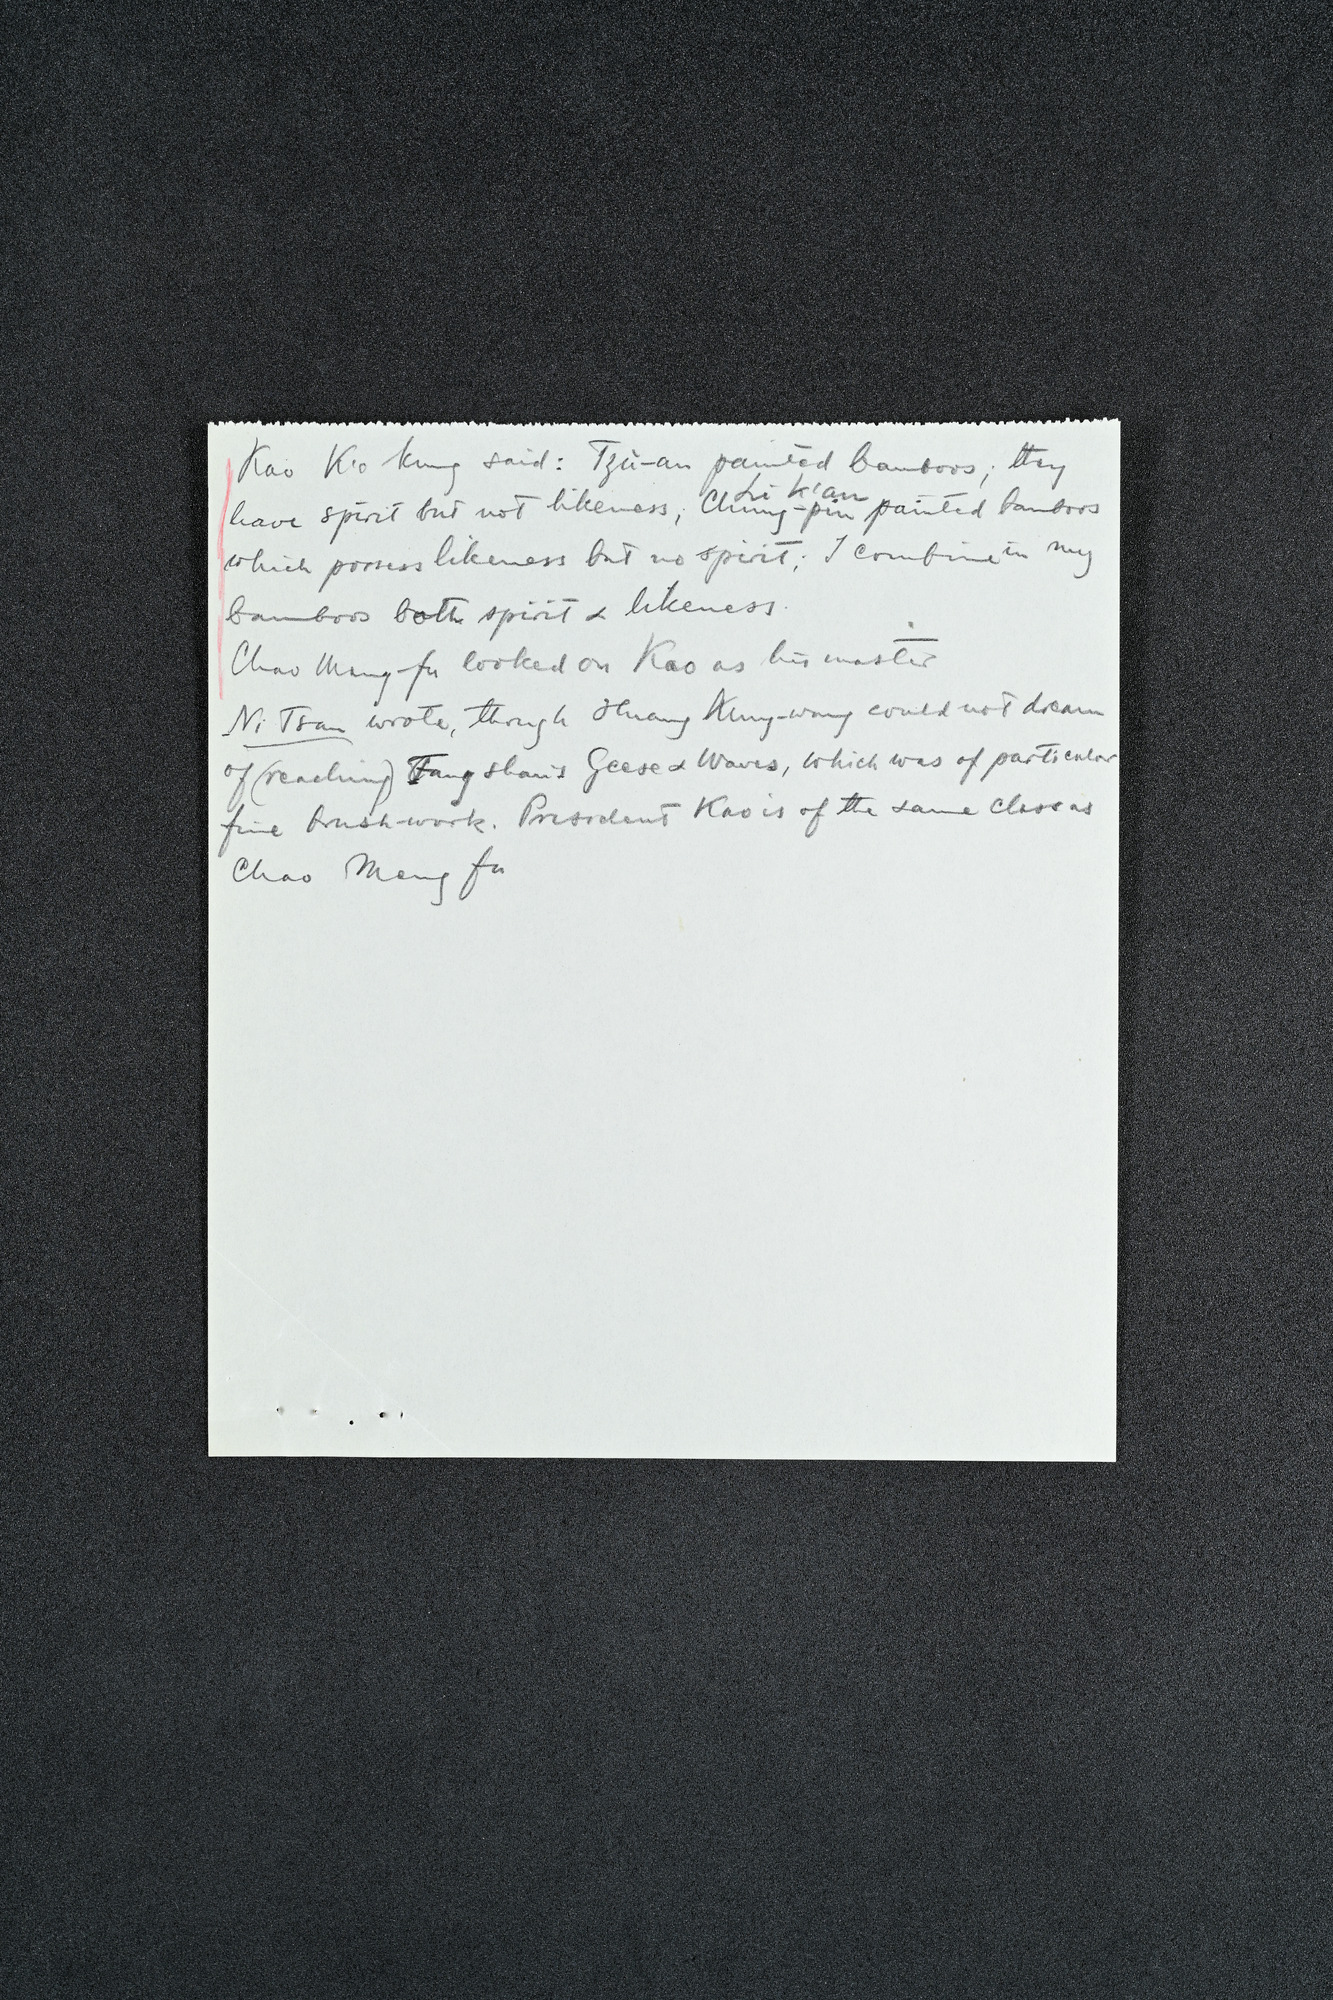 Kao K'o kung said: Tzŭ-an painted bamboos; they
have spirit but not likeness; Chung-pin painted bamboos
Li K'an
which possess likeness but no spirit; I combine in my
bamboos both spirit & likeness.
Chao Meng-fu looked on Kao as his master
Ni Tsan wrote, though Huang Kung-wang could not dream
of (reaching) Fang shan's Geese & Waves, which was of particular
fine brush-work. President Kao is of the same class as
Chao Meng fu